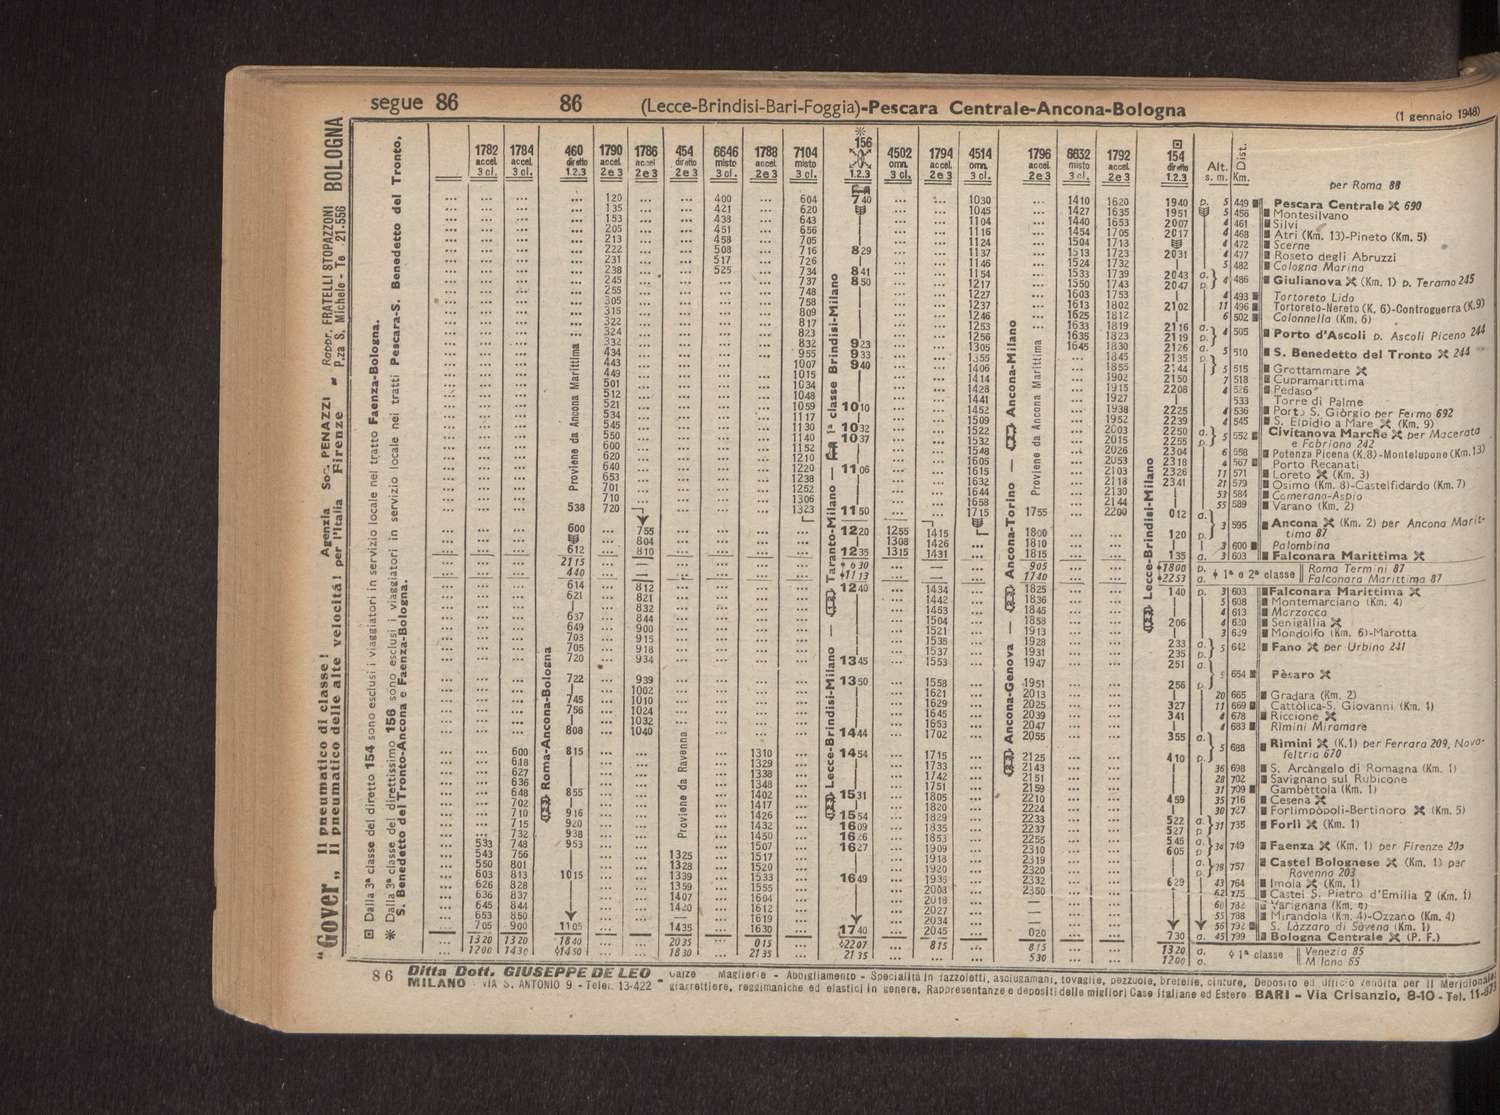 segue 86 86 (Lecce-Brindisi-Bari-Foggia)-Pescara Centrale-Ancona-Bologna (1 gennaio 1948)
"Gover„ Il pneumatico di classe! Il pneumatico delle alte velocità! Agenzia Soc. PENAZZI per l'Italia Firenze - Rappr. FRATELLI STOPAZZONI P.za S. Michele - Te. 21.556 BOLOGNA
⊡ Dalla 3ª classe del diretto 154 sono esclusi i viaggiatori in servizio locale nel tratto Faenza-Bologna.
✳ Dalla 3ª classe del direttissimo 156 sono esclusi i viaggiatori in servizio locale nei tratti Pescara-S. Benedetto del Tronto, S. Benedetto del Tronto-Ancona e Faenza-Bologna.
1782 1784 460 1790 1786 454 6646 1788 7104 156 4502 1794 4514 1796 6632 1792 154 Alt. Dist.
accel. accel. diretto accel. accel. diretto misto accel. misto omn. accel. omn. accel. misto accel. diretto s. m. Km.
3 cl. 3 cl. 1.2.3 2 e 3 2 e 3 2 e 3 3 cl. 2 e 3 3 cl. 1.2.3 3 cl. 2 e 3 3 cl. 2 e 3 3 cl. 2 e 3 1.2.3
per Roma 88
120 400 604 740 1030 1410 1620 1940 p. 5 449 Pescara Centrale 690
135 421 620 1045 1427 1635 1951 5 456 Montesilvano
153 438 643 1104 1440 1653 2007 4 461 Silvi
205 451 656 1116 1454 1705 2017 4 468 Atri (Km. 13)-Pineto (Km. 5)
213 458 705 1124 1504 1713 4 472 Scerne
222 508 716 829 1137 1513 1723 2031 4 477 Roseto degli Abruzzi
231 517 726 1146 1524 1732 5 482 Cologna Marina
238 525 734 841 1154 1533 1739 2043 a. 4 486 Giulianova (Km. 1) p. Teramo 245
245 737 850 1217 1550 1743 2047 p.
255 748 1227 1603 1753 4 493 Tortoreto Lido
305 758 1237 1613 1802 2102 11 496 Tortoreto-Nereto (K. 6)-Controguerra (K.9)
315 809 1246 1625 1812 6 502 Colonnella (Km. 6)
322 817 1253 1633 1819 2116 a. 4 505 Porto d'Ascoli p. Ascoli Piceno 244
324 823 1256 1635 1823 2119 p.
332 832 923 1305 1645 1830 2126 a. 5 510 S. Benedetto del Tronto 244
434 955 933 1355 1845 2135 p.
443 1007 940 1406 1855 2144 5 515 Grottammare
449 1015 1414 1902 2150 7 518 Cupramarittima
501 1034 1428 1915 2208 4 526 Pedaso
512 1048 1441 1927 533 Torre di Palme
521 1059 1010 1452 1938 2225 4 536 Porto S. Giòrgio per Fermo 692
534 1117 1509 1952 2239 4 545 S. Elpidio a Mare (Km. 9)
545 1130 1032 1522 2003 2250 a. 5 552 Civitanova Marche per Macerata
550 1140 1037 1532 2015 2255 p. e Fabriano 242
600 1152 1548 2026 2304 6 558 Potenza Picena (K.8)-Montelupone (Km.13)
620 1210 1605 2053 2318 4 567 Porto Recanati
640 1220 1106 1615 2103 2326 11 571 Loreto (Km. 3)
653 1238 1632 2118 2341 21 579 Osimo (Km. 8)-Castelfidardo (Km. 7)
701 1252 1644 2130 53 584 Camerano-Aspio
710 1306 1658 2144 55 589 Varano (Km. 2)
538 720 1323 1150 1715 1755 2200 012 a. 3 595 Ancona (Km. 2) per Ancona Marit-
600 755 1220 1255 1415 1800 120 p. tima 87
804 1308 1426 1810 3 600 Palombina
612 810 1235 1315 1431 1815 135 a. 3 603 Falconara Marittima
2115 630 905 1800 p. 1ª e 2ª classe Roma Termini 87
440 1113 1740 2253 a. Falconara Marittima 87
614 812 1240 1434 1825 140 p. 3 603 Falconara Marittima
621 821 1442 1836 5 608 Montemarciano (Km. 4)
832 1453 1845 4 613 Marzocca
637 844 1504 1858 206 4 620 Senigàllia
649 900 1521 1913 3 629 Mondolfo (Km. 6)-Marotta
703 915 1535 1928 233 a. 5 642 Fano per Urbino 241
705 918 1537 1931 235 p.
720 934 1345 1553 1947 251 a. 654 Pèsaro
722 939 1350 1558 1951 256 p.
1002 1621 2013 20 665 Gradara (Km. 2)
745 1010 1629 2025 327 11 669 Cattòlica-S. Giovanni (Km. 1)
756 1024 1645 2039 341 4 678 Riccione
1032 1653 2047 4 683 Rimini Miramare
808 1040 1444 1702 2055 355 a. 5 688 Rimini (K.1) per Ferrara 209, Nova-
600 815 1310 1454 1715 2125 410 p. feltria 670
618 1329 1733 2143 36 698 S. Arcàngelo di Romagna (Km. 1)
627 1338 1742 2151 28 702 Savignano sul Rubicone
636 1348 1751 2159 31 709 Gambèttola (Km. 1)
648 855 1402 1531 1805 2210 459 35 716 Cesena
702 1417 1820 2224 30 727 Forlimpòpoli-Bertinoro (Km. 5)
710 916 1426 1554 1829 2233 522 a. 31 735 Forlì (Km. 1)
715 920 1432 1609 1835 2237 527 p.
732 938 1450 1626 1853 2255 545 a. 34 749 Faenza (Km. 1) per Firenze
533 748 953 1507 1627 1909 2310 605 p.
543 756 1325 1517 1918 2319 a. 757 Castel Bolognese (Km. 1) per
550 801 1328 1520 1920 2320 p. Ravenna 203
603 813 1015 1339 1533 1649 1935 2332 629 43 764 Imola (Km. 1)
626 828 1359 1555 2003 2350 62 775 Castel S. Pietro d'Emilia (Km. 1)
636 837 1407 1604 2018 60 782 Varignana
645 844 1420 1612 2027 55 788 Mirandola (Km. 4)-Ozzano (Km. 4)
653 850 — 1619 2034 56 792 S. Làzzaro di Sàvena (Km. 1)
705 900 1105 1435 1630 1740 2045 020 730 a. 45 799 Bologna Centrale (P. F.)
1320 1320 1840 2035 015 2207 815 815 1320 a. 1ª classe Venezia 85
1200 1430 1450 1830 2135 2135 530 1200 a. Milano 65
Roma-Ancona-Bologna
Proviene da Ancona Marittima
Proviene da Ravenna
Lecce-Brindisi-Milano — Taranto-Milano — 1ª classe Brindisi-Milano
Ancona-Genova — Ancona-Torino — Ancona-Milano
Proviene da Ancona Marittima
Lecce-Brindisi-Milano
86 Ditta Dott. GIUSEPPE DE LEO Calze - Maglierie - Abbigliamento - Specialità in fazzoletti, asciugamani, tovaglie, pezzuole, bretelle, cinture. Deposito ed ufficio vendita per il Meridionale:
MILANO - VIA S. ANTONIO 9 - Telef. 13-422 - giarrettiere, reggimaniche ed elastici in genere. Rappresentanze e depositi delle migliori Case Italiane ed Estere BARI - Via Crisanzio, 8-10 - Tel.